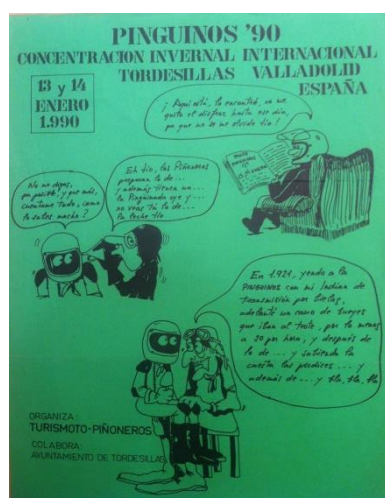 PINGUINOS '90
CONCENTRACION INVERNAL INTERNACIONAL
TORDESILLAS VALLADOLID
ESPAÑA
13 y 14
ENERO
1.990
¡ Aquí está, la encontré, no me
quito el disfraz hasta ese día,
ya que no se me olvida tío!
No me digas,
y qué más,
cuéntame todo, como
lo sabes macho?
Eh tío, los Piñoneros
preparan la de ...
y además tienen un ...
la Pingüinada oye y ...
no veas tú la de ...
la leche tío
En 1.921, yendo a la
PINGUINOS con mi Indian de
transmisión por bielas,
adelanté un carro de bueyes
que iban al trote, por lo menos
a 30 por hora, y después de
lo de ... y subiendo la
cuesta las perdices ... y
además de ... y bla, bla, bla
ORGANIZA :
TURISMOTO-PIÑONEROS
COLABORA:
AYUNTAMIENTO DE TORDESILLAS